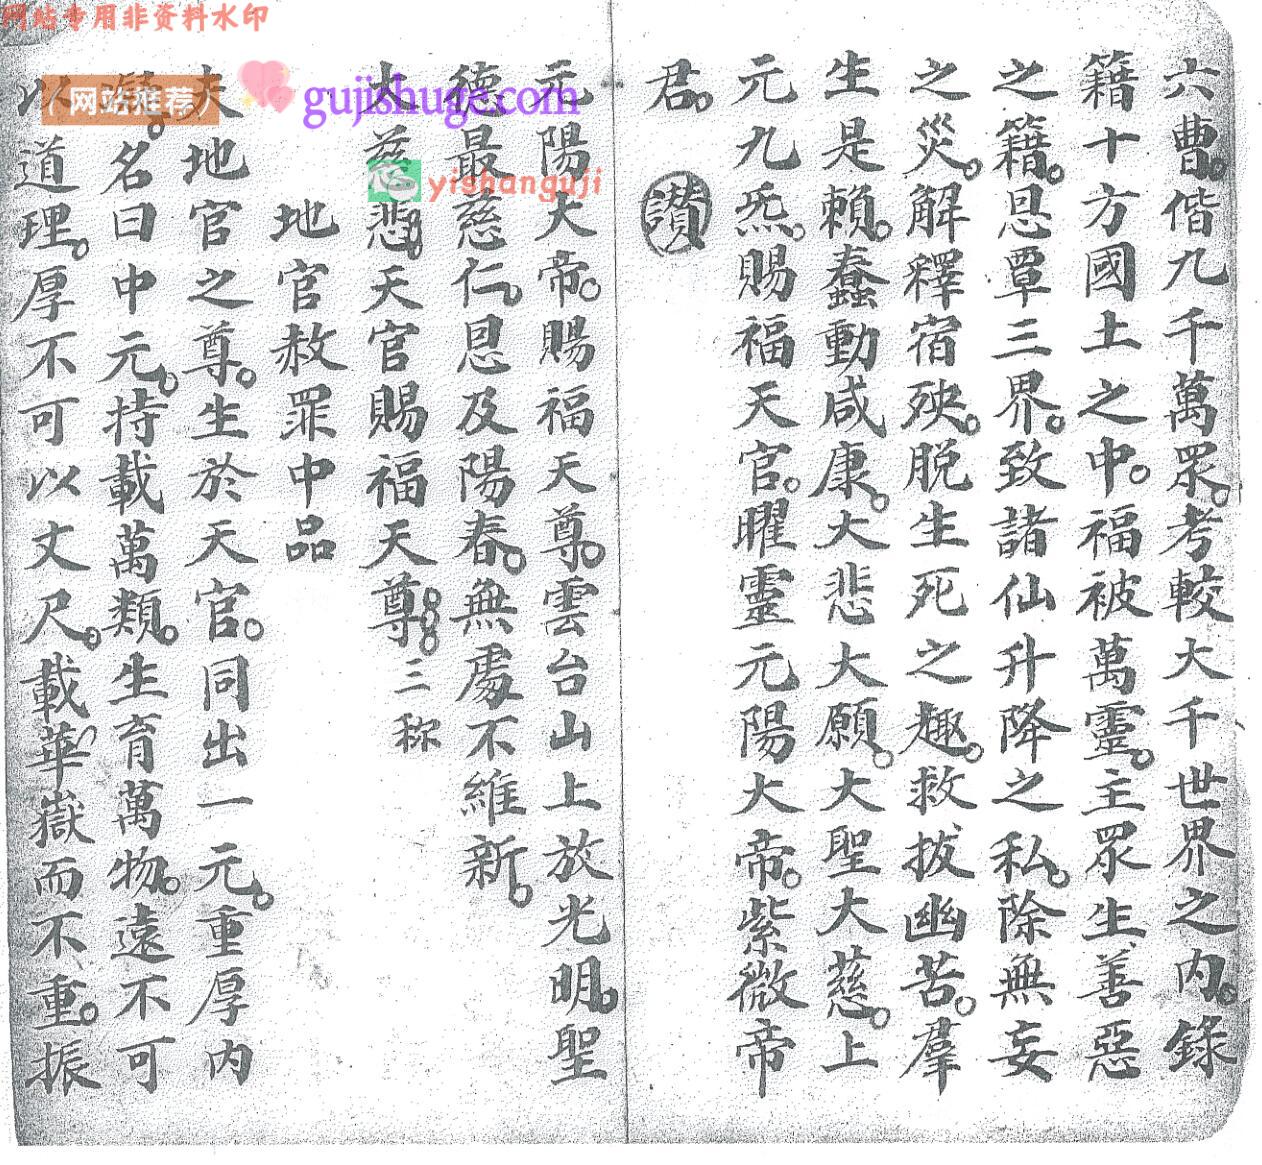 网站专用非资料水印
网站推荐
gujishuge.com
yishanguji
六曹。偕九千萬眾。考較大千世界之内。錄
籍十方國土之中。福被萬靈。主眾生善惡
之籍。恩覃三界。致諸仙升降之私。除無妄
之災。解釋宿殃。脱生死之趣。救拔幽苦。羣
生是賴。蠢動咸康。大悲大願。大聖大慈。上
元九炁。賜福天官。曜靈元陽大帝。紫微帝
君。讃
元陽大帝。賜福天尊。雲台山上放光明。聖
德最慈仁。恩及陽春。無處不維新。
大慈悲天官賜福天尊。三称
地官赦罪中品
夫地官之尊。生於天官。同出一元。重厚内
名曰中元。持載萬類。生育萬物。遠不可
以道理。厚不可以丈尺。載華嶽而不重。振